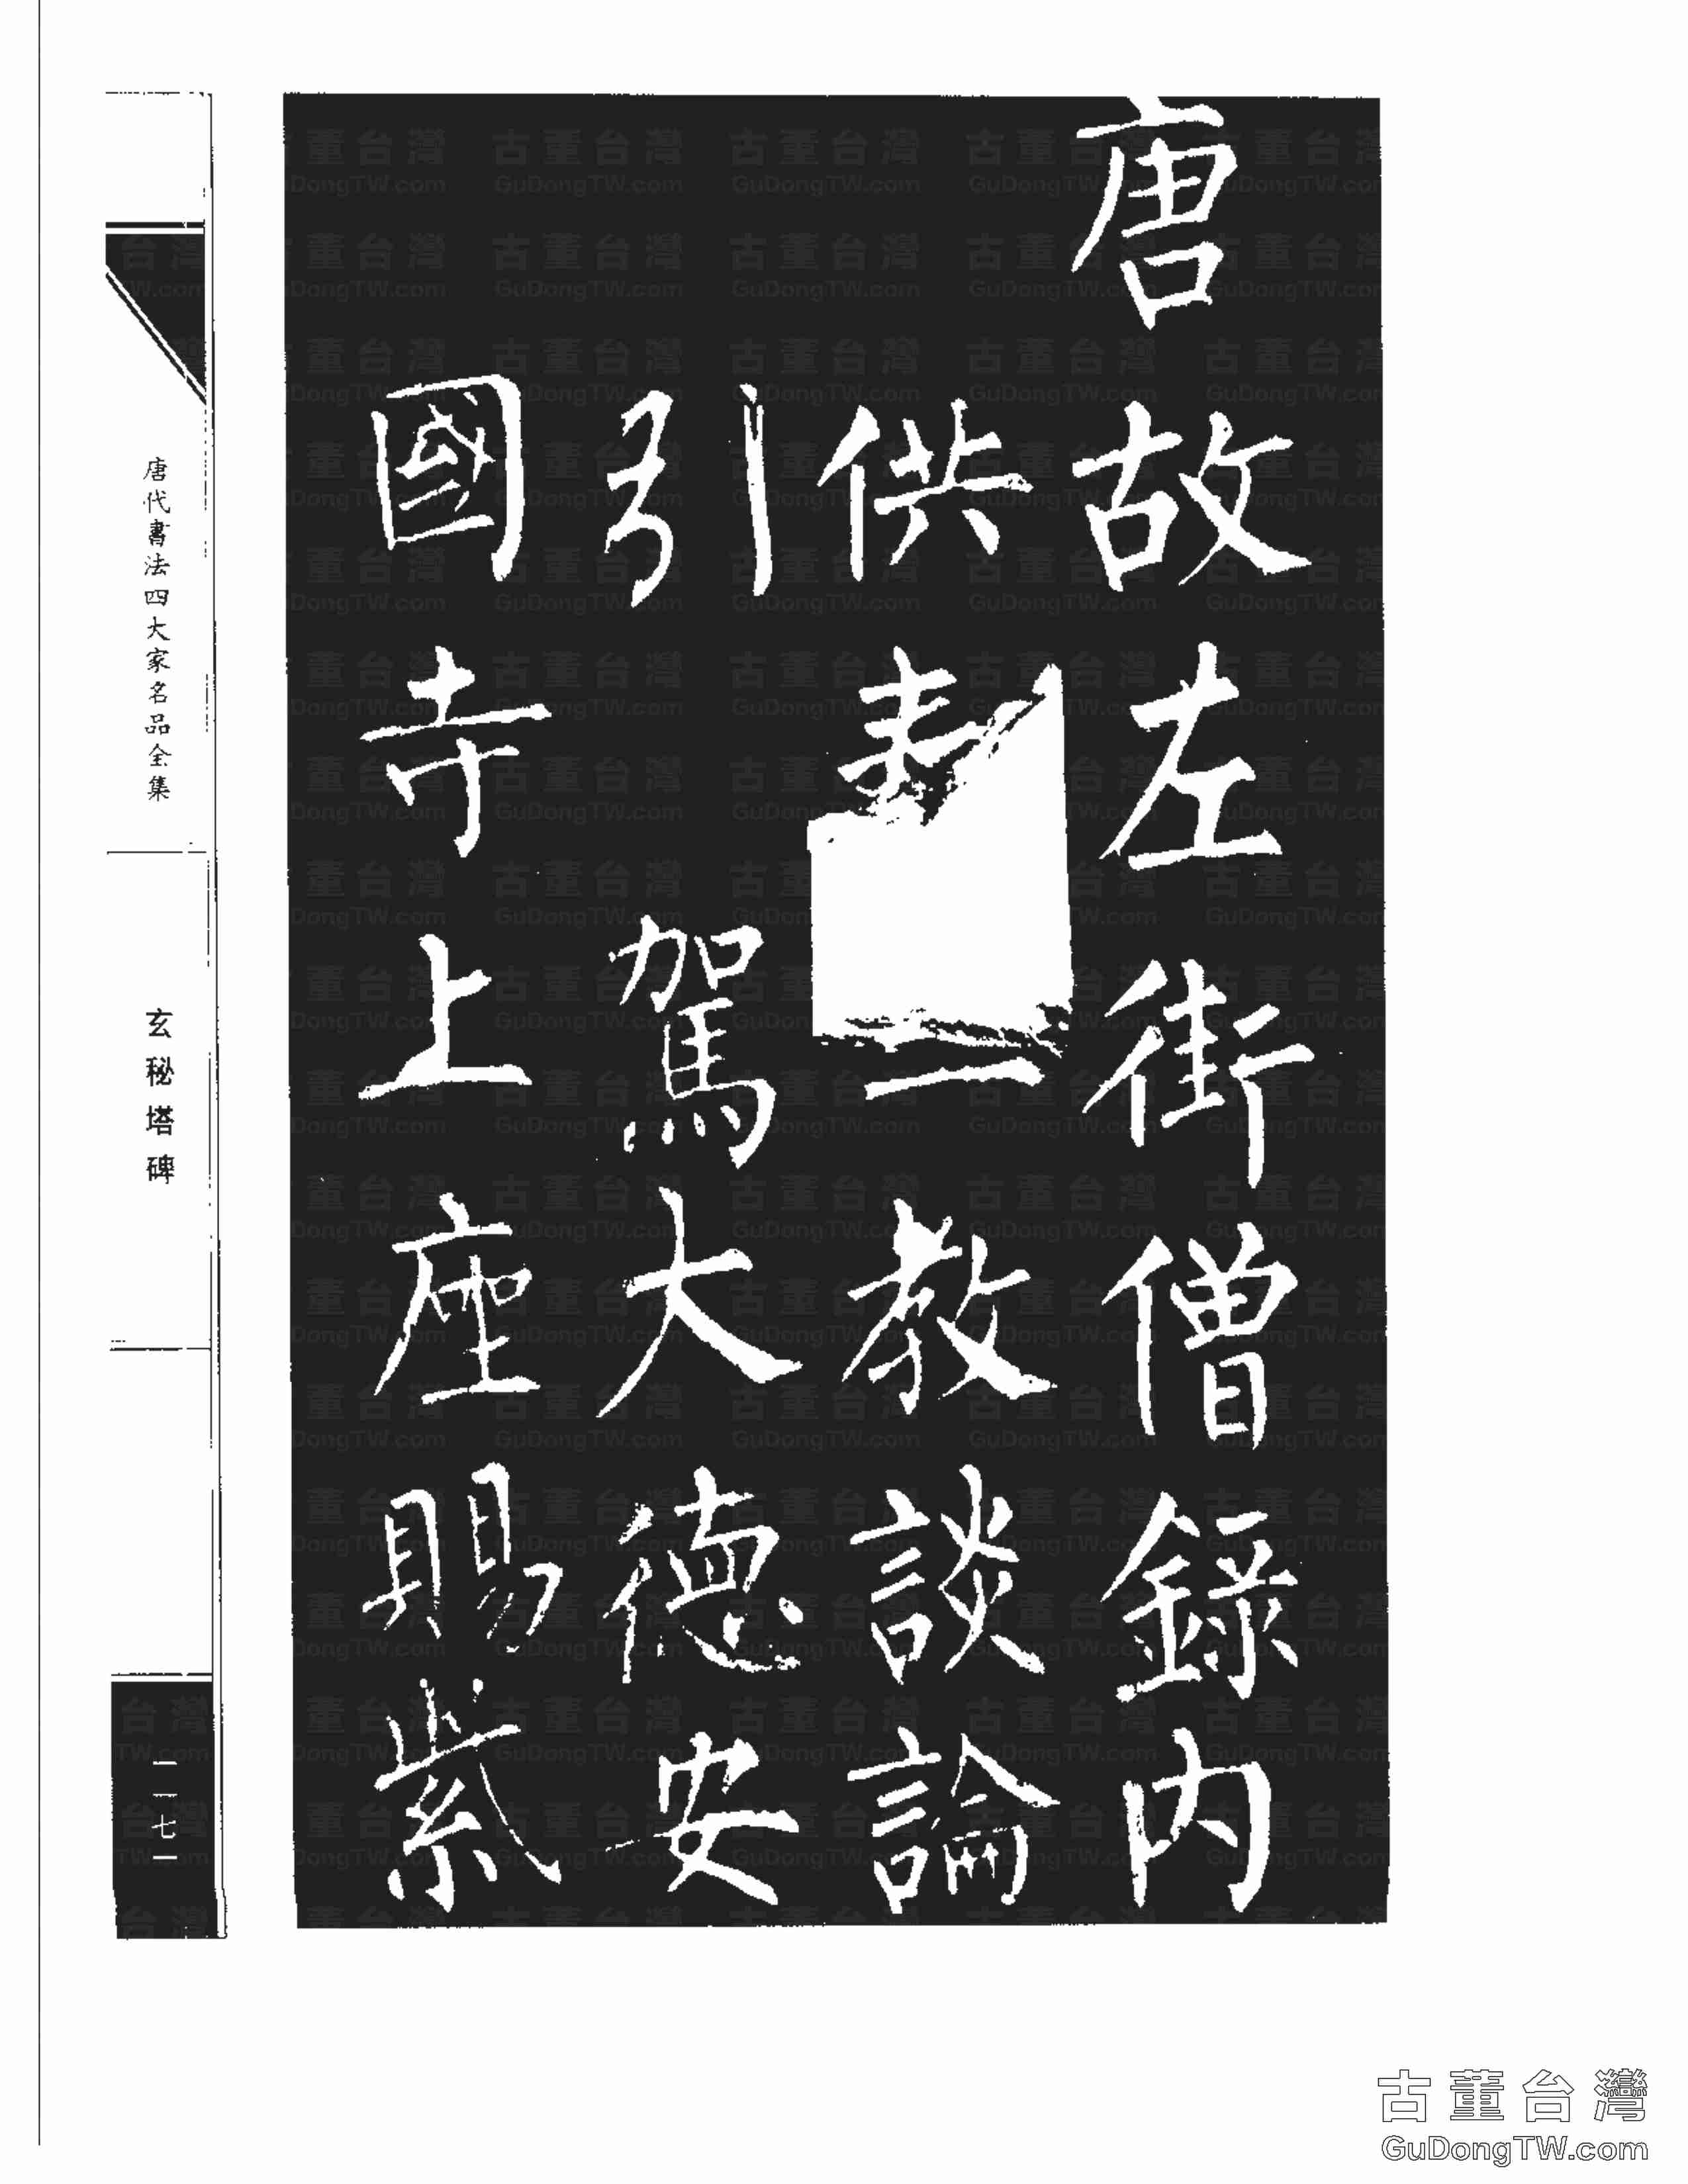 唐故左街僧錄內
供奉教談論
引駕大德安
國寺上座賜紫
唐代書法四大家名品全集
玄秘塔碑
一一七一
古董台灣
GuDongTW.com